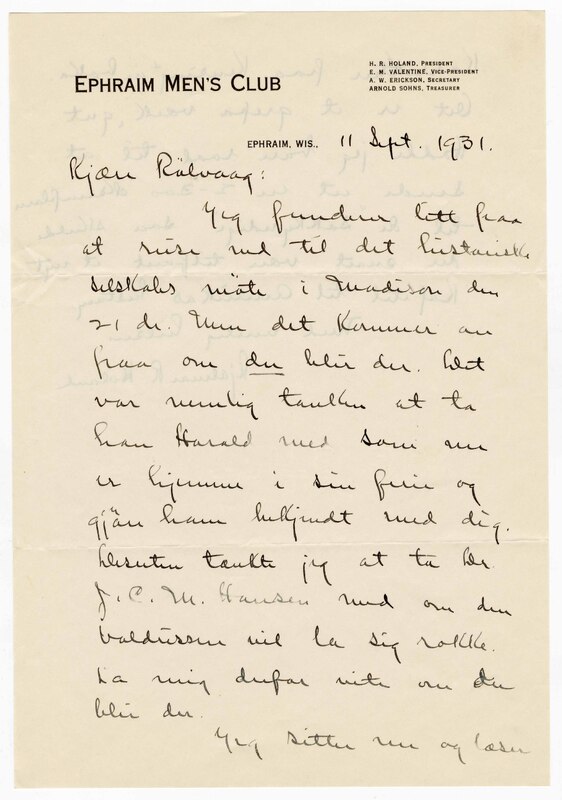 EPHRAIM MEN'S CLUB
H. R. HOLAND, PRESIDENT
E. M. VALENTINE, VICE-PRESIDENT
A. W. ERICKSON, SECRETARY
ARNOLD SOHNS, TREASURER
EPHRAIM, WIS., 11 Sept. 1931.
Kjære Rölvaag:
Jeg funderer litt paa
at reise ned til det historiske
selskabs möte i Madison den
21 de. Men det kommer an
paa om du blir der. Det
var nemlig tanken at ta
han Harald med som nu
er hjemme i sin ferie og
gjöre ham bekjendt med dig.
Desuten tænkte jeg at ta Dr.
J. C. M. Hansen med om den
vil la sig rokke.
La mig derfor vite om du
blir der.
Jeg sitter nu og læser